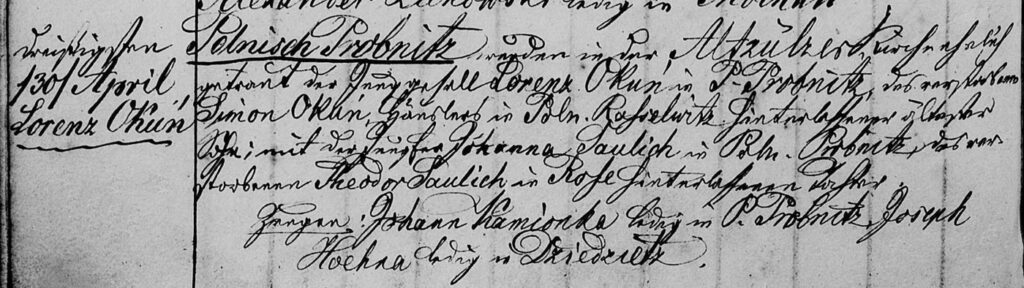 Alexander ledig in
dreißigsten
/30/ April,
Lorenz Okun,
Polnisch Probnitz, wurden in der Altzülzer Kirche ehelich
getraut der Junggesell Lorenz Okun in P. Probnitz, des verstorbenen
Simon Okun, Häuslers in Poln. Rasselwitz hinterlassener ältester
Sohn; mit der Jungfer Johanna Saulich in Poln. Probnitz, des ver-
storbenen Theodor Saulich in Rose hinterlassenen Tochter.
Zeugen: Johann Kamionka ledig in P. Probnitz. Joseph
Hoehna ledig in Dziedzietz.